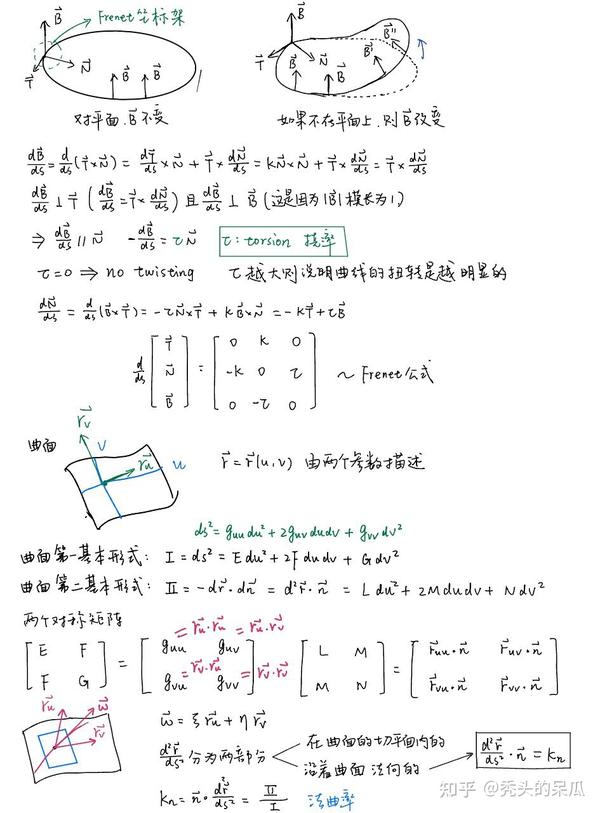 Frenet坐标架
B⃗
T⃗ N⃗ B⃗ B⃗
B⃗ B⃗''
T⃗ B⃗ N⃗ B⃗ B⃗'
对平面，B⃗不变
如果不在平面上，则B⃗改变
dB⃗/ds = d/ds(T⃗×N⃗) = dT⃗/ds × N⃗ + T⃗ × dN⃗/ds = kN⃗×N⃗ + T⃗ × dN⃗/ds = T⃗ × dN⃗/ds
dB⃗/ds ⊥ T⃗ (dB⃗/ds = T⃗ × dN⃗/ds) 且 dB⃗/ds ⊥ B⃗ (这是因为|B⃗|模长为1)
⇒ dB⃗/ds ∥ N⃗ -dB⃗/ds = τN⃗ τ: torsion 挠率
τ=0 ⇒ no twisting τ越大则说明曲线的扭转是越明显的
dN⃗/ds = d/ds(B⃗×T⃗) = -τN⃗×T⃗ + kB⃗×N⃗ = -kT⃗ + τB⃗
d/ds [T⃗ N⃗ B⃗] = [0 k 0
-k 0 τ
0 -τ 0] ~ Frenet公式
曲面 r⃗v v r⃗u u r⃗ = r⃗(u,v) 由两个参数描述
ds² = guu du² + 2guv dudv + gvv dv²
曲面第一基本形式: I = ds² = Edu² + 2Fdudv + Gdv²
曲面第二基本形式: II = -dr⃗·dn⃗ = d²r⃗·n⃗ = Ldu² + 2Mdudv + Ndv²
两个对称矩阵
=r⃗u·r⃗u =r⃗u·r⃗v
[E F] = [guu guv] [L M] = [r⃗uu·n⃗ r⃗uv·n⃗]
=r⃗v·r⃗u =r⃗v·r⃗v
[F G] [gvu gvv] [M N] [r⃗vu·n⃗ r⃗vv·n⃗]
r⃗u w⃗ r⃗v
w⃗ = ξr⃗u + ηr⃗v
d²r⃗/ds² 分为两部分
在曲面的切平面内的
沿着曲面法向的 → d²r⃗/ds²·n⃗ = kn
kn = n⃗·d²r⃗/ds² = II/I 法曲率
知乎 @秃头的呆瓜